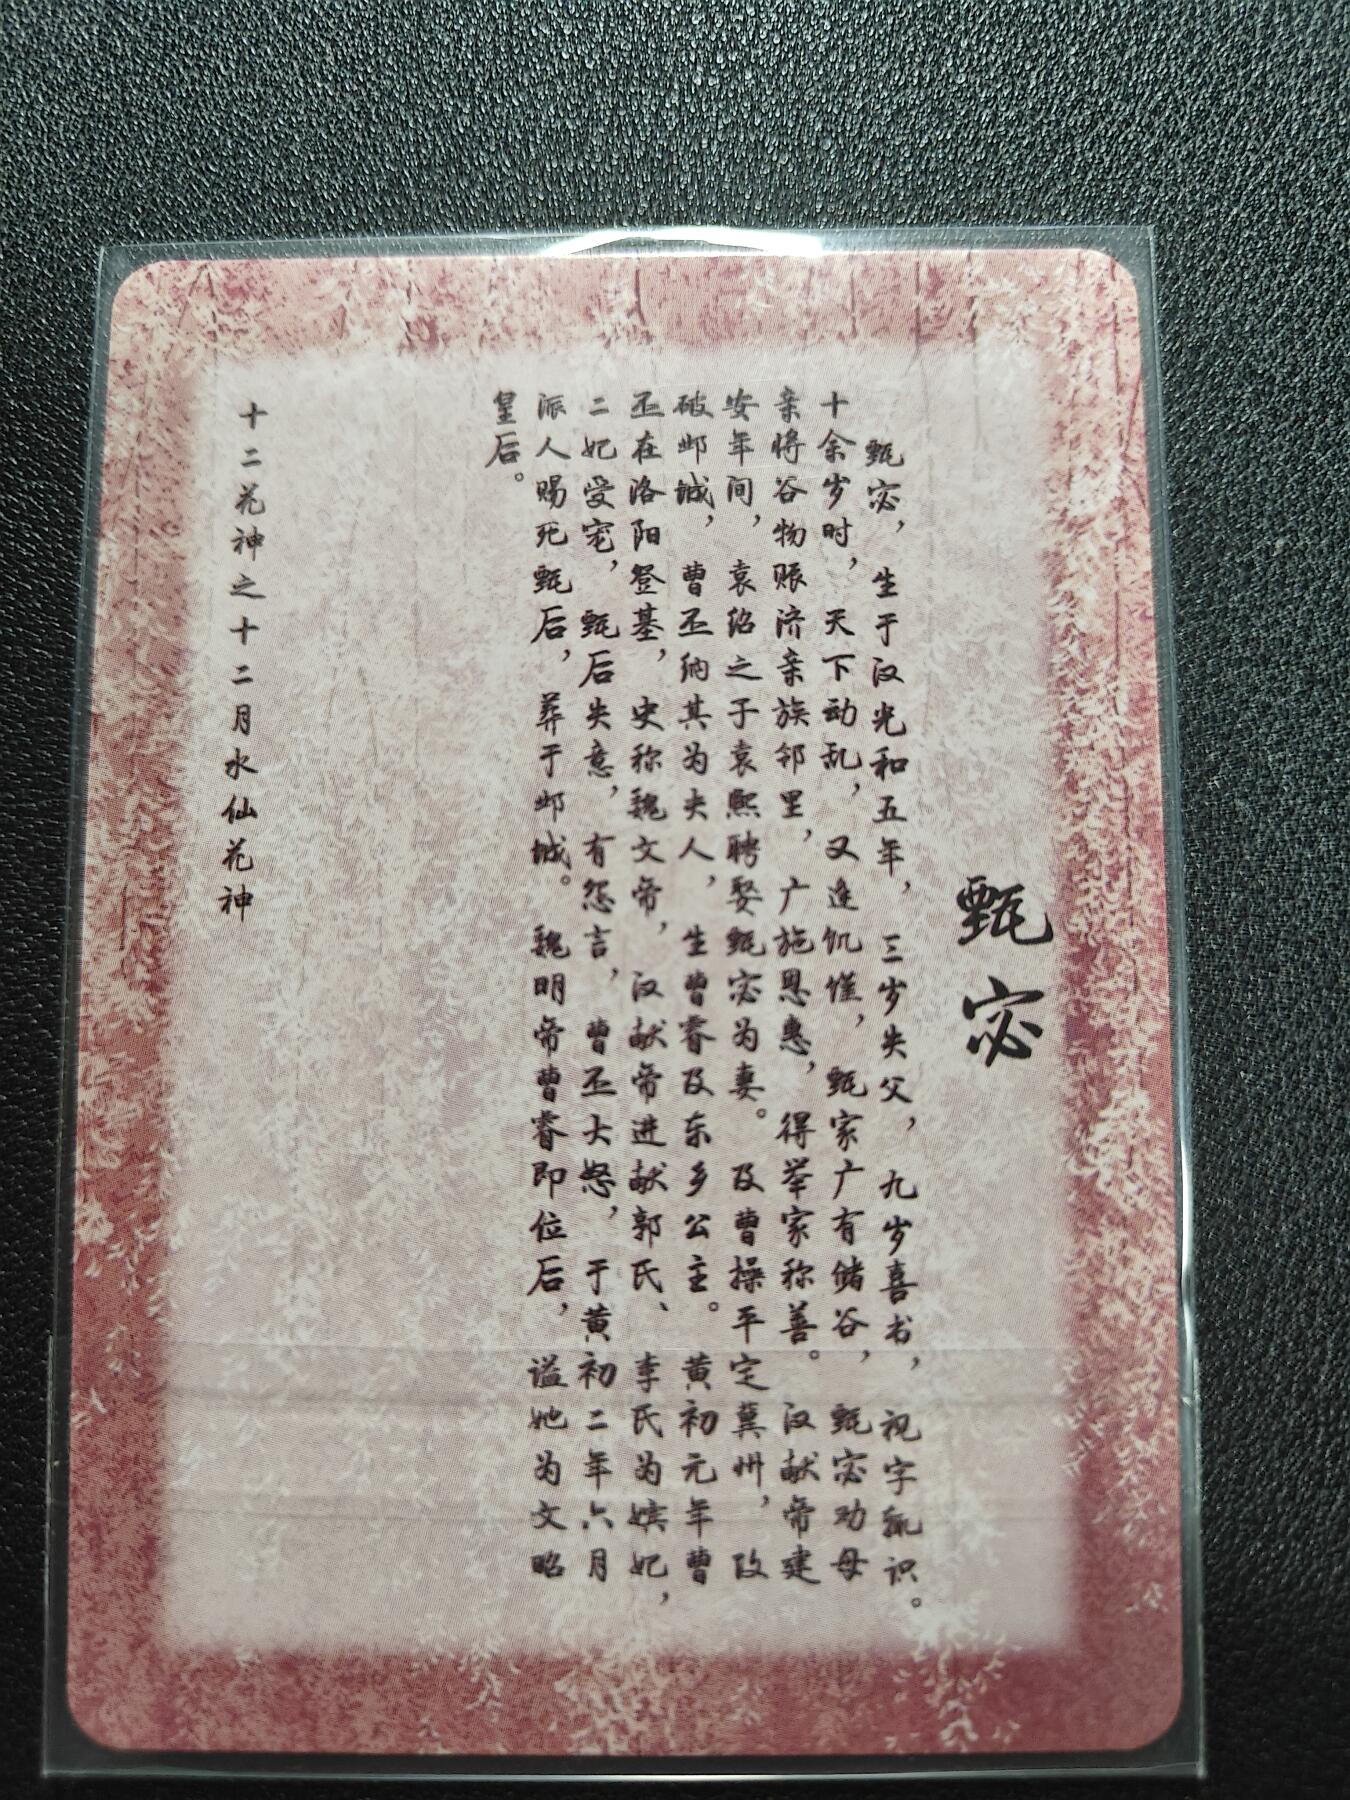 甄宓
甄宓，生于汉光和五年，三岁失父，九岁喜书，视字辄识。
十余岁时，天下动乱，又逢饥馑，甄家广有储谷，甄宓劝母
亲将谷物赈济亲族邻里，广施恩惠，得举家称善。汉献帝建
安年间，袁绍之子袁熙聘娶甄宓为妻。及曹操平定冀州，攻
破邺城，曹丕纳其为夫人，生曹睿及东乡公主。黄初元年曹
丕在洛阳登基，史称魏文帝，汉献帝进献郭氏、李氏为嫔妃，
二妃受宠，甄后失意，有怨言，曹丕大怒，于黄初二年六月
派人赐死甄后，葬于邺城。魏明帝曹睿即位后，谥她为文昭
皇后。
十二花神之十二月水仙花神